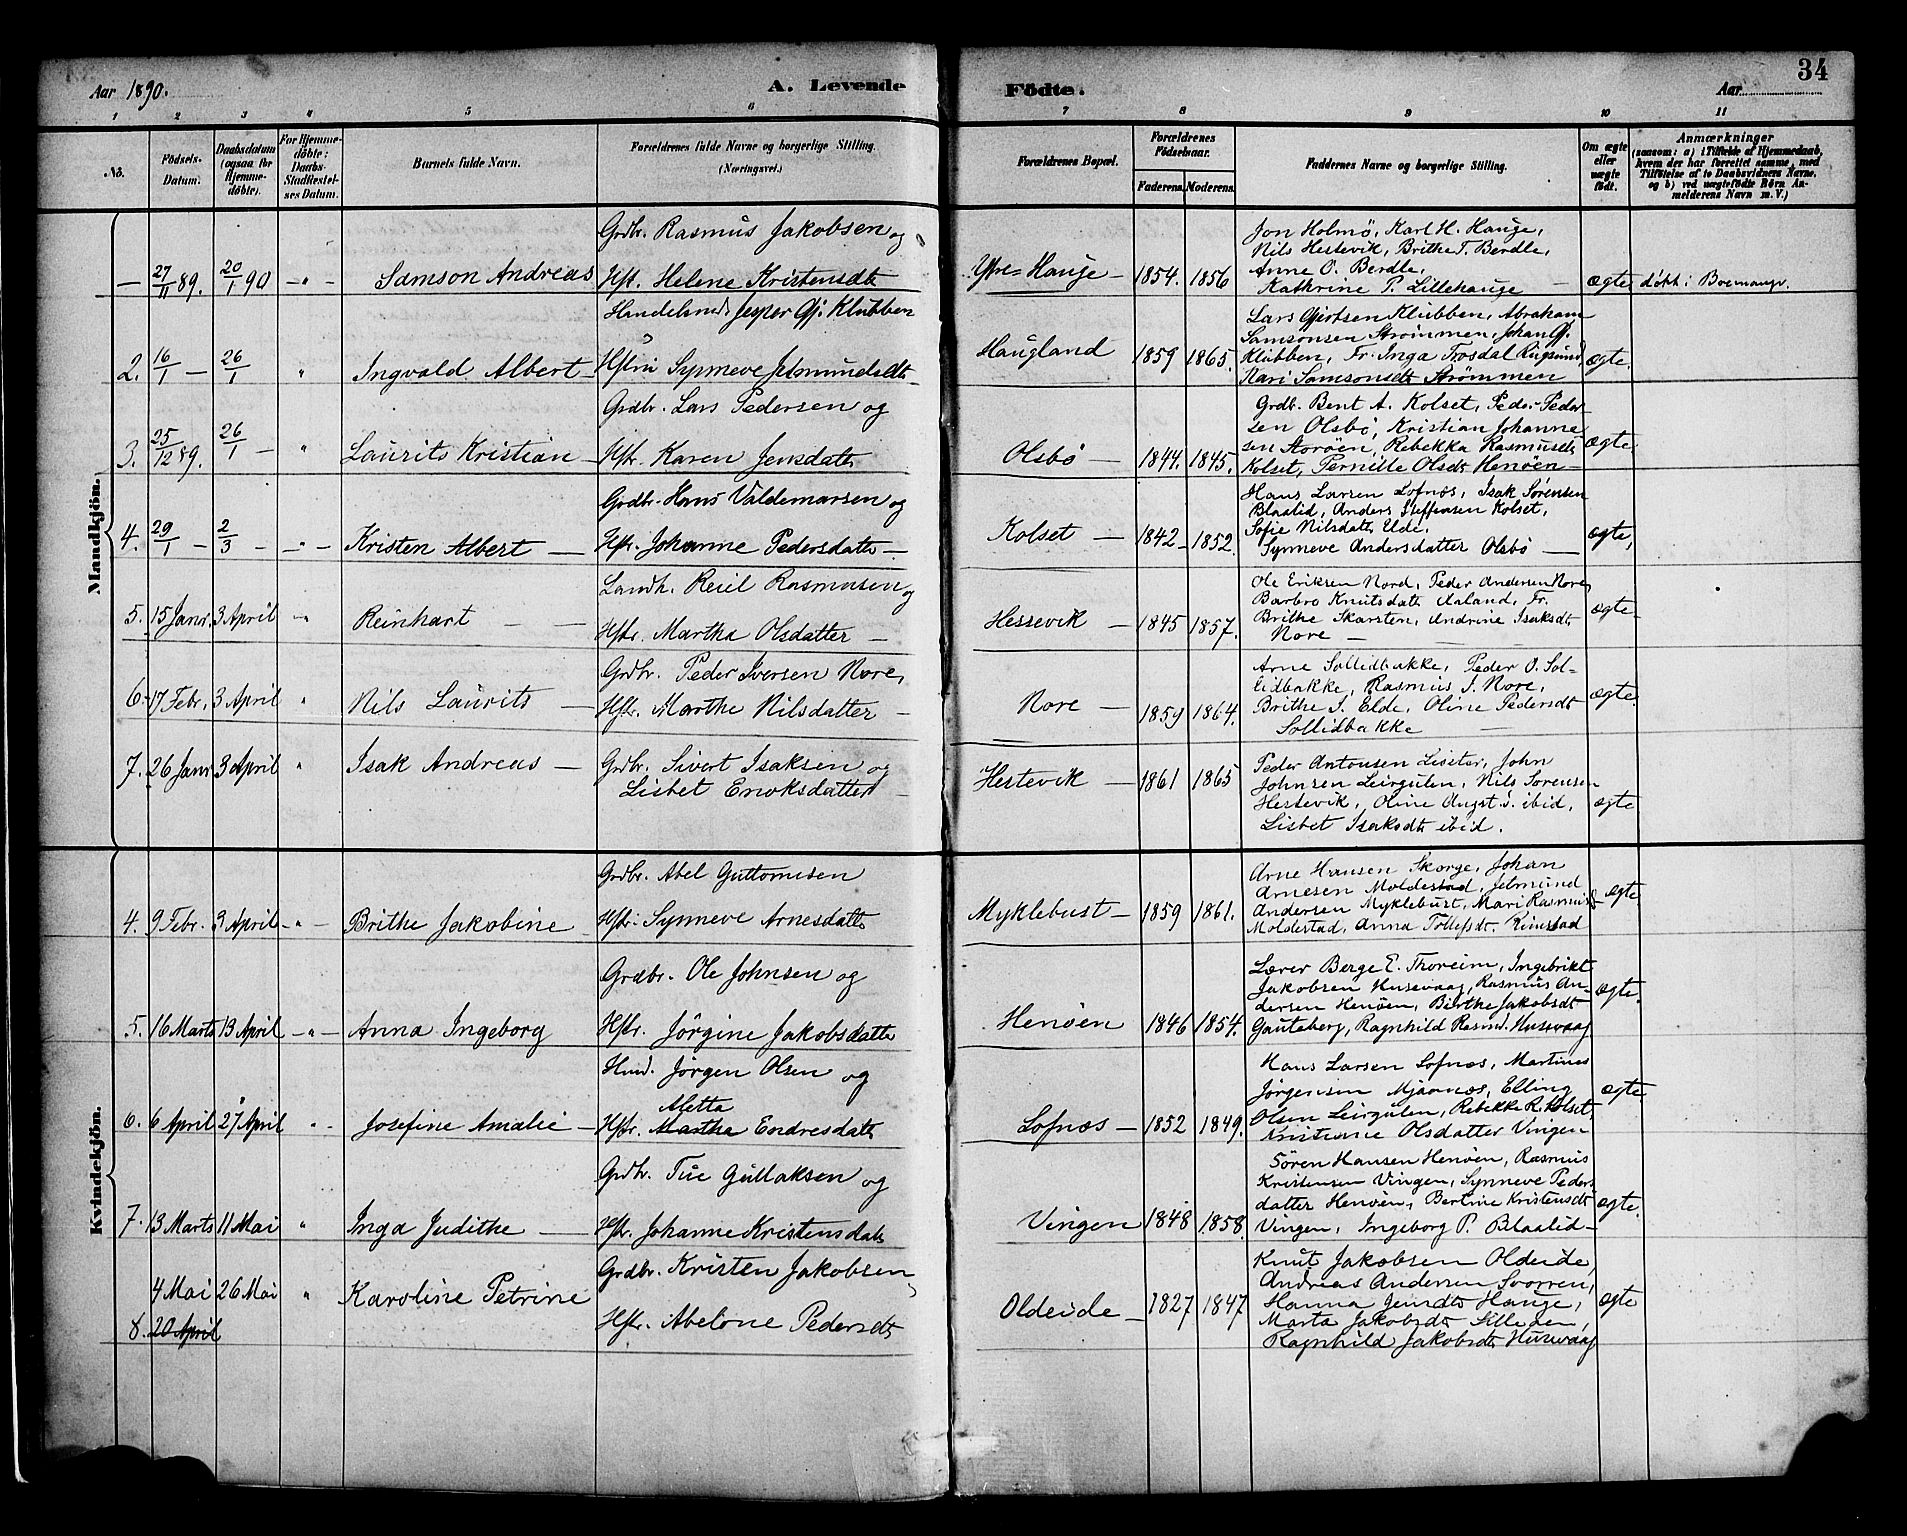 Aar 1890.
A. Levende
Födte.
Aar
34
1 2 3 4 5 6 7 8 9 10 11
No.
Födsels-Datum.
Daabsdatum (ogsaa for Hjemme-döbte).
For Hjemme-döbte: Daabs-Stadfæstel-ses Datum.
Barnets fulde Navn.
Forældrenes fulde Navne og borgerlige Stilling. (Næringsvei.)
Forældrenes Bopæl.
Forældrenes Födselsaar.
Faderens. Moderens.
Faddernes Navne og borgerlige Stilling.
Om ægte eller uægte födt.
Anmærkninger
(saasom: a) i Tilfælde af Hjemmedaab, hvem der har forrettet samme, med Tilföielse af to Daabsvidners Navne, og b) ved uægtefödte Börn Anmelderens Navn m. V.)
Mandkjön.
Grdbr. Rasmus Jakobsen og
— 27/11 89. 20/1 90 — „ — Samson Andreas Hst. Helene Kristensdt
Ytre Hauge — 1854. 1856
Jon Holmö, Karl H. Hauge,
Nils Hestevik, Brithe T. Berdle,
Anne O. Berdle,
Kathrine P. Lillehauge —
ægte døbt i Bremanger.
Handelsmd. Jesper Gj. Klubben
2. 16/1 — 26/1 „ Ingvald Albert — Hstru Synneve Jetmundsdtr
Haugland 1859 1865.
Lars Gjertsen Klubben, Abraham
Samsonsen Strömmen, Johan Gj.
Klubben, Fr. Inga Trosdal Rugsund,
Kari Samsonsdtr Strömmen
ægte.
Grdbr. Lars Pedersen og
3. 25/12 89. 26/1 — „ Laurits Kristian — Hstr. Karen Jensdatter
Olsbö — 1844. 1845.
Grdbr. Bent A. Kolset, Peder Peder-
sen Olsbö, Kristian Johanne
sen Aoröen, Rebekka Rasmusdtr
Kolset, Pernille Olsdtr Henöen —
ægte.
Grdbr. Hans Valdemarsen og
4. 29/1 — 2/3 — — „ — Kristen Albert — Hstr. Johanne Pedersdatter —
Kolset — 1842 — 1852.
Hans Larsen Lofnæs, Isak Sörensen
Blaalid, Anders Steffensen Kolset,
Sofie Nilsdatter Elde,
Synneve Andersdatter Olsbö —
ægte,
Landh. Reiel Rasmusen og
5. 15 Janr. 3 April „ Reinhart — — Hstr. Martha Olsdatter —
Hessevik — 1845 1857.
Ole Eriksen Nord, Peder Andersen Nore,
Barbro Knutsdatter Aaland, Fr.
Brithe Skarsten, Andrine Isaksdtr
Nore —
ægte
Grdbr. Peder Iversen Nore,
6. 17 Febr. 3 April „ Nils Laurits — Hstr. Marthe Nilsdatter —
Nore — 1859 1864.
Arne Sollidbakke, Peder O. Sol-
lidbakke, Rasmus I. Nore,
Brithe I. Elde, Oline Pedersdt
Sollidbakke —
ægte.
7. 26 Janr 3 April „ Isak Andreas — Grdbr. Sivert Isaksen og
Lisbet Enoksdatter —
Hestevik — 1861 1865
Peder Antonsen Liseter, John
Johnsen Leirgulen, Nils Sorensen
Hestevik, Oline Angst. s. ibid,
Lisbet Isaksdtr ibid.
ægte
Kvindekjön.
Grdbr. Abel Guttomsen
4. 9 Febr. 3 April — „ — Brithe Jakobine Hstr. Synneve Arnesdatter
Myklebust — 1859 1861.
Arne Hansen Skorge, Johan
Arnesen Moldestad, Jetmund
Andersen Myklebust, Mari Rasmusd
Moldestad, Anna Tollefsdt. Rimstad
ægte
Grdbr. Ole Johnsen og
5. 16 Marts 13 April — „ — Anna Ingeborg Hstr. Jörgine Jakobsdatter
Henöen 1846 1854.
Lærer Berge E. Thoreim, Ingebrikt
Jakobsen Husevaag, Rasmus An-
dersen Henöen, Birthe Jakobsdt
Gauteberg, Ragnhild Rasmd. Husevaag
ægte.
Hmd. Jörgen Olsen og
Aletta
6. 6 April 27 April „ Josefine Amalie — Hstr. Martha Endresdatter
Lofnæs — 1852 1849.
Hans Larsen Lofnæs, Martines
Jörgensen Mjaanæs, Elling
Olsen Leirgulen, Rebekke R. Kolset
Kristiane Olsdatter Vingen
ægte
Grdbr. Tue Gullaksen og
7. 13 Marts 11 Mai „ Inga Judithe — Hstr. Johanne Kristensdatter
Vingen 1848 1858.
Sören Hansen Henöen, Rasmus
Kristensen Vingen, Synneve Peders
datter Henöen, Bertine Kristensdt
Vingen, Ingeborg P. Blaalid —
ægte.
Grdbr. Kristen Jakobsen,
4 Mai 26 Mai „ Karoline Petrine
8. 20 April Hstr. Abelone Pedersdtr
Oldeide — 1827 1847
Knut Jakobsen Oldeide,
Andreas Andersen Svorren,
Hanna Jensdtr Hauge,
Marta Jakobsdt
Ragnhild Jakobsdtr Husevaag
ægte